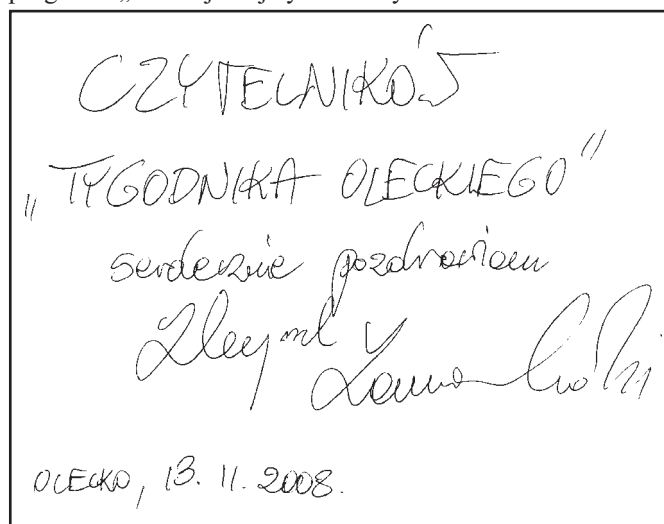 CZYTELNIKÓW
„TYGODNIKA OLECKIEGO”
serdecznie pozdrawiam
OLECKO, 13. 11. 2008.